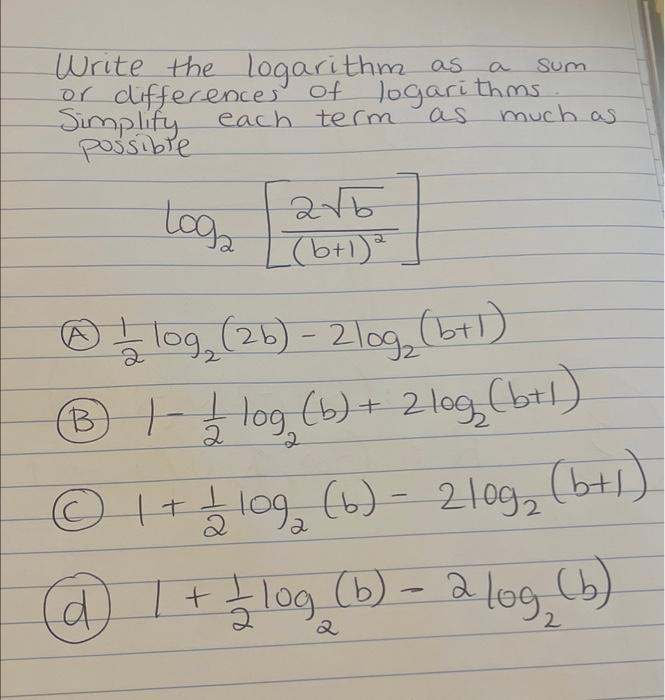 Write the logarithm as a sum
or differences of logarithms.
Simplify each term as much as
possible
log₂ [2√b / (b+1)²]
Ⓐ ½ log₂(2b) - 2log₂(b+1)
Ⓑ 1 - ½ log₂(b) + 2log₂(b+1)
Ⓒ 1 + ½ log₂(b) - 2log₂(b+1)
ⓓ 1 + ½ log₂(b) - 2 log₂(b)